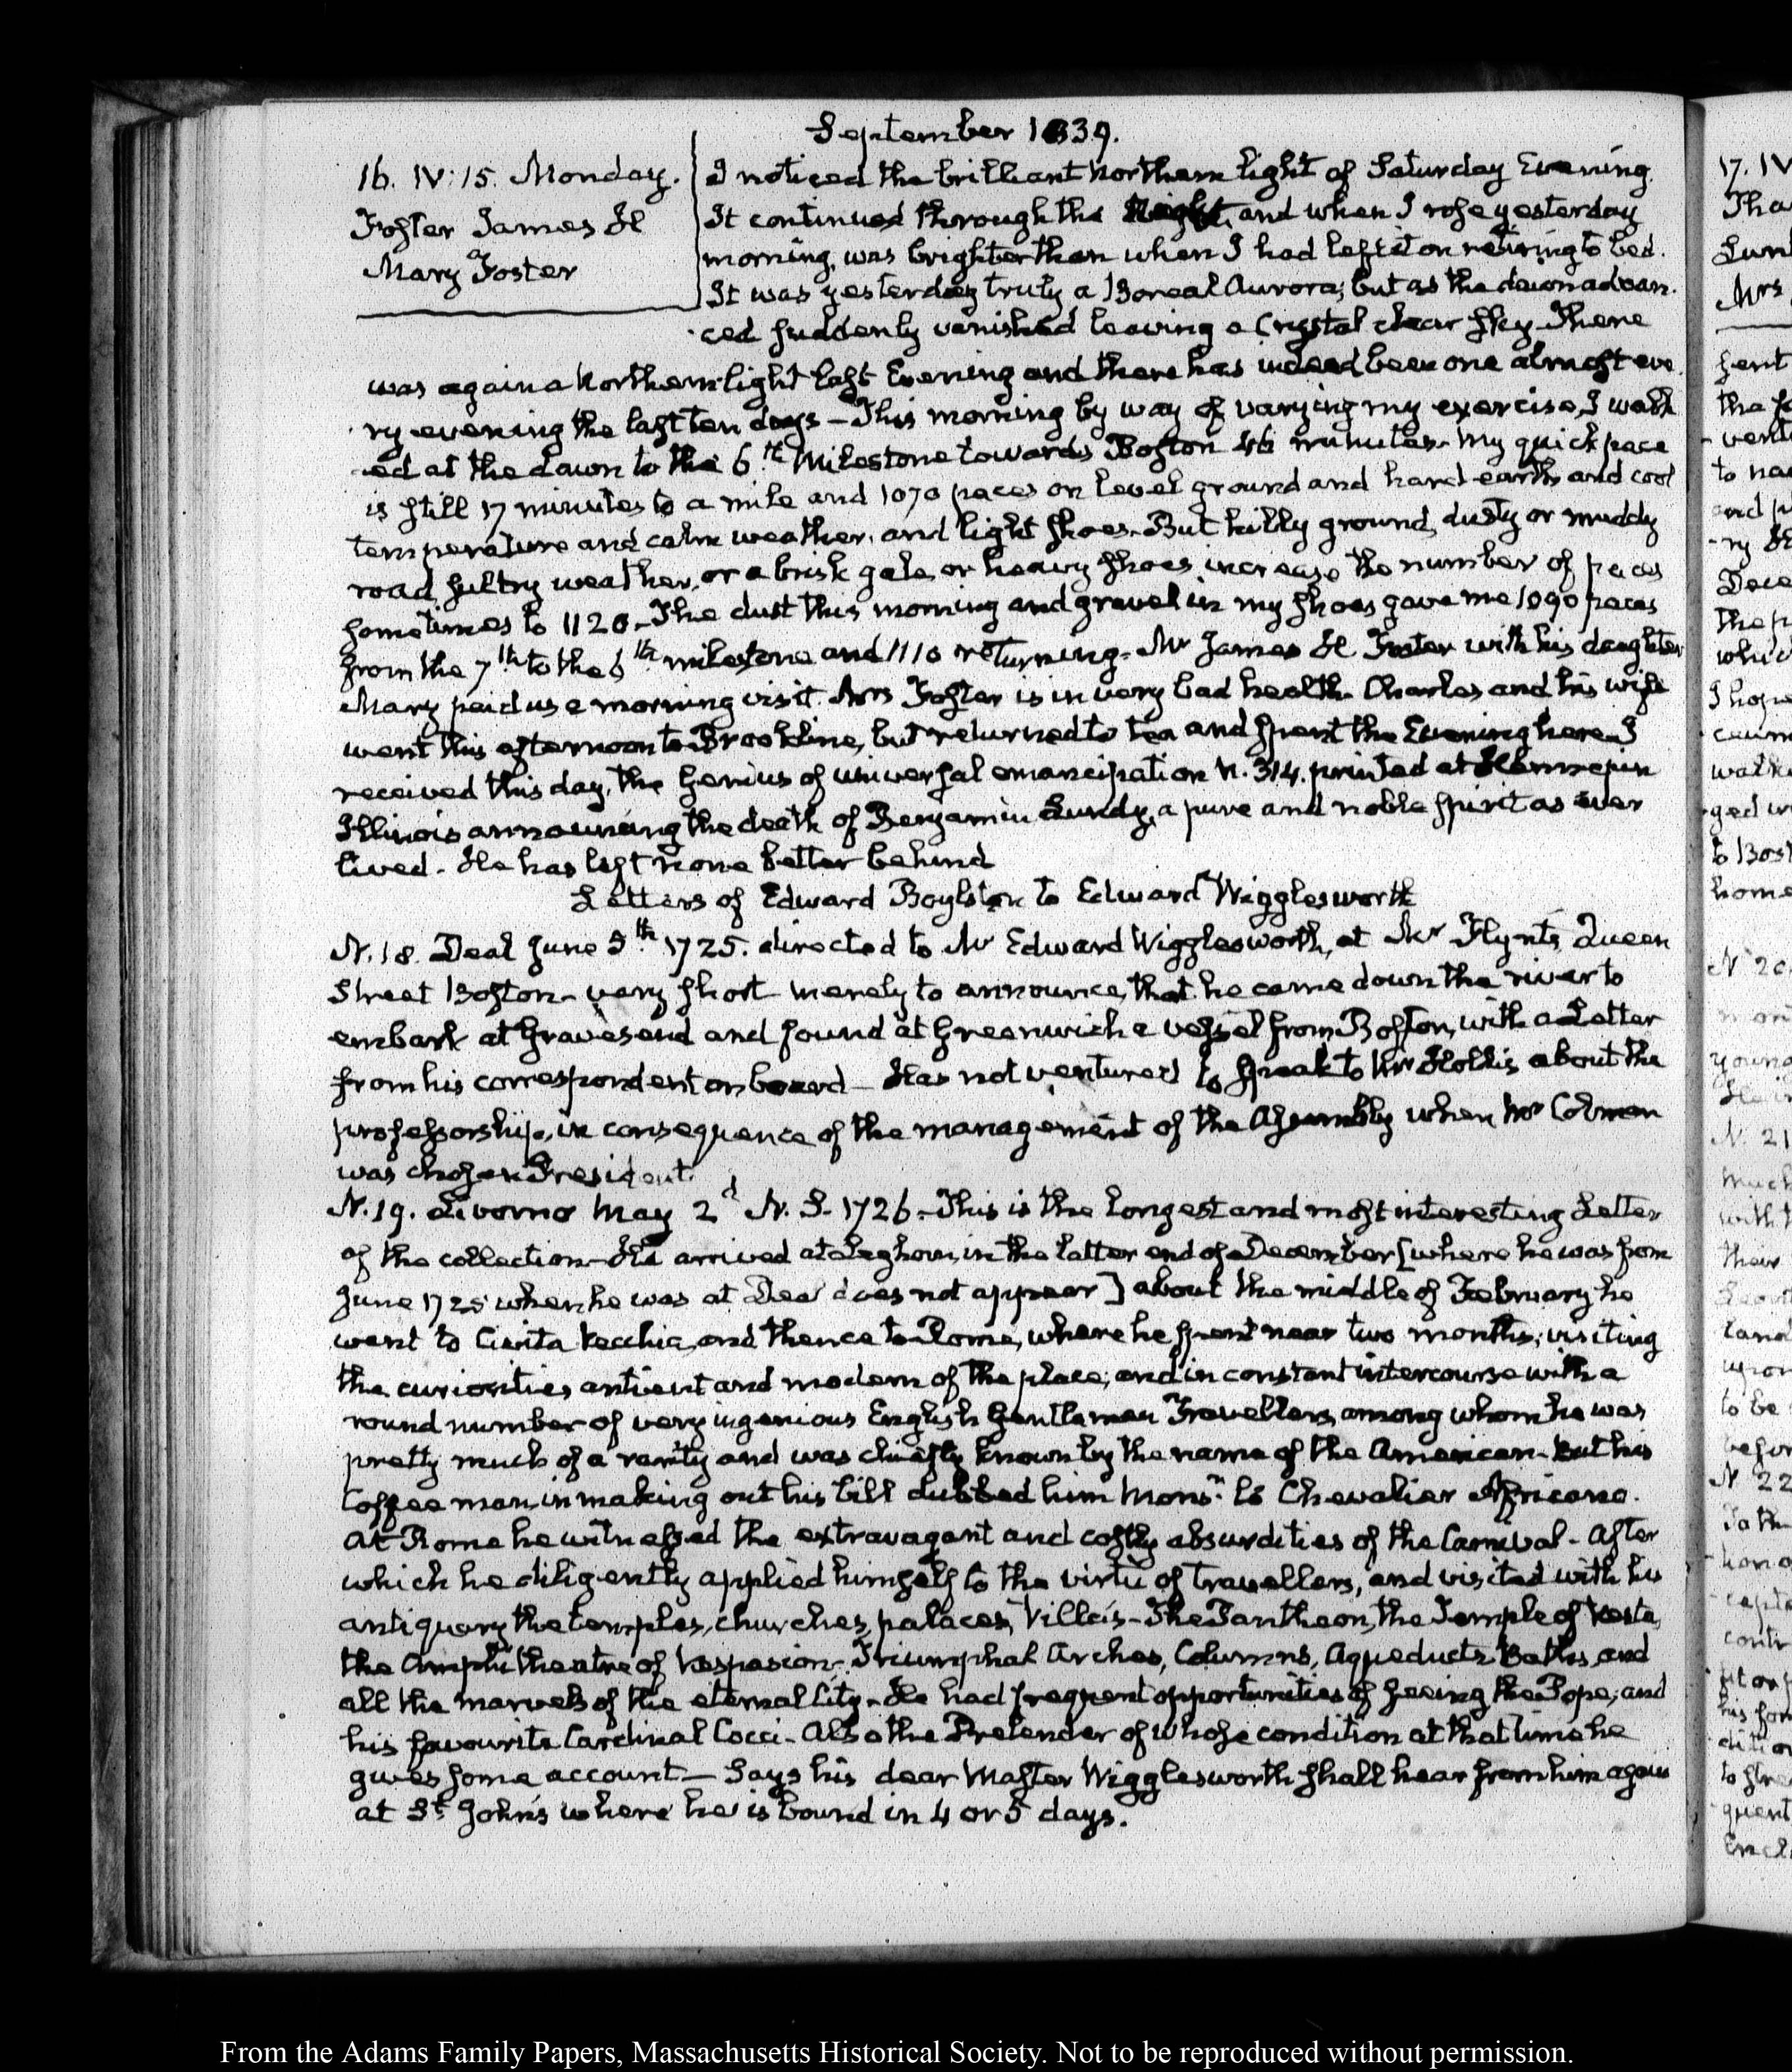 September 1839.
16. IV:15. Monday.
Foster James H
Mary Foster
I noticed the brilliant Northern light of Saturday Evening.
It continued through the Night, and when I rose yesterday
morning, was brighter than when I had left it on retiring to bed.
It was yesterday truly a Boreal Aurora; but as the dawn advan-
-ced suddenly vanished leaving a Crystal clear sky. There
was again a Northern light last Evening and there has indeed been one almost eve
-ry evening the last ten days – This morning by way of varying my exercise, I walk
-ed at the dawn to the 6.th Milestone towards Boston 46 minutes. My quick pace
is still 17 minutes to a mile and 1070 paces on level ground and hard earth and cool
temperature and calm weather, and light shoes. But hilly ground, dusty or muddy
road, sultry weather, or a brisk gale, or heavy shoes, increase the number of paces
sometimes to 1120 – The dust this morning and gravel in my shoes gave me 1090 paces
from the 7th to the 6th milestone and 1110 returning. Mr James H Foster with his daughter
Mary paid us a morning visit. Mrs Foster is in very bad health. Charles and his wife
went this afternoon to Brookline, but returned to tea and spent the Evening here. I
received this day, the Genius of universal emancipation N. 314. printed at Hennepin
Illinois announcing the death of Benjamin Lundy, a pure and noble spirit as ever
lived. He has left none better behind
Letters of Edward Boylston to Edward Wigglesworth
N. 18. Deal June 5th 1725. directed to Mr Edward Wigglesworth, at Mr Flynts, Queen
Street Boston – very short merely to announce, that he came down the river to
embark at Gravesend and found at Greenwich a vessel from Boston, with a Letter
from his correspondent on board – Has not ventured to speak to Mr Hollis about the
professorship, in consequence of the management of the Assembly when Mr Colman
was chosen President.
N. 19. Livorno May 2d N. S. 1726 – This is the longest and most interesting Letter
of the collection – He arrived at Leghorn, in the latter end of December [where he was from
June 1725 when he was at Deal does not appear] about the middle of February he
went to Civita Vecchia, and thence to Rome, where he spent near two months; visiting
the curiosities antient and modern of the place; and in constant intercourse with a
round number of very ingenious English Gentlemen Travellers, among whom he was
pretty much of a rarity and was chiefly known by the name of the American – But his
Coffee man, in making out his bill dubbed him Monsr. le Chevalier Africano.
At Rome he witnessed the extravagant and costly absurdities of the Carnival – After
which he diligently applied himself to the virtù of travellers, and visited with his
antiquary the temples, churches, palaces, Villa's – The Pantheon, the Temple of Vesta,
the Amphitheatre of Vespasian – Triumphal Arches, Columns, Aqueducts Baths, and
all the marvels of the eternal City – He had frequent opportunities of seeing the Pope; and
his favourite Cardinal Cocci – Also the Pretender of whose condition at that time he
gives some account – Says his dear Master Wigglesworth shall hear from him again
at St. John's where he is bound in 4 or 5 days.
From the Adams Family Papers, Massachusetts Historical Society. Not to be reproduced without permission.